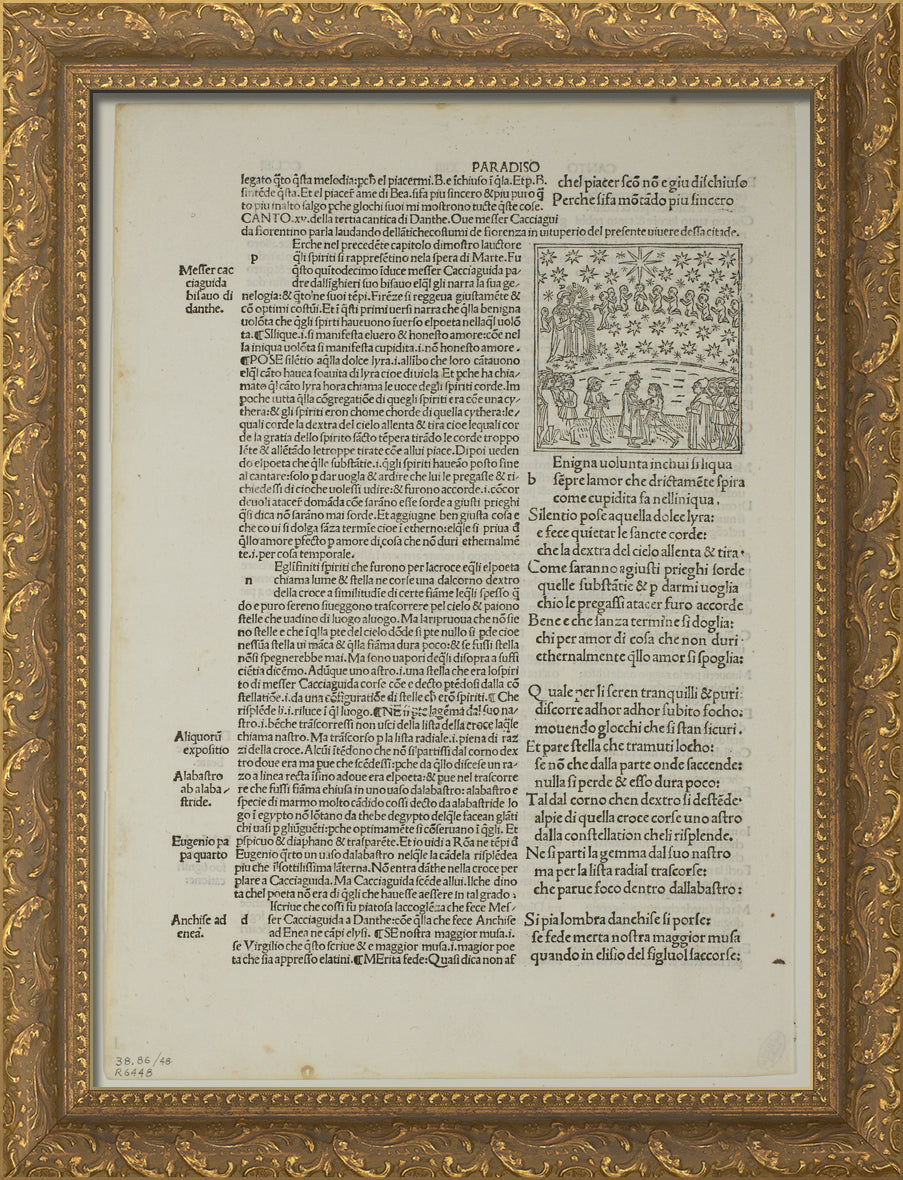 PARADISO
legato q̄to q̄sta melodia: pch̄ el piacermi. B. e īchiuso ī q̄la. Et p. B.
sintēde q̄sta. Et el piacer ame di Bea. sifa piu sincero & piu puro q̄
to piu inalto salgo pche glochi suoi mi mostrono tucte q̄ste cose.
chel piacer scō nō e giu dischiuso
Perche sifa mōtādo piu sincero
CANTO. xv. della tertia cantica di Danthe. Oue messer Cacciagui
da fiorentino parla laudando dellātichecostumi de fiorenza in uituperio del presente uiuere dessa citade.
Messer cac
ciaguida
bisauo di
danthe.
Erche nel precedēte capitolo dimostro lauctore
p q̄li spiriti si rappresētino nela spera di Marte. Fu
q̄sto quītodecimo īduce messer Cacciaguida pa-
dre dallighieri suo bisauo elq̄l gli narra la sua ge-
nelogia: & q̄to'ne suoi tēpi. Firēze si reggeua giustamēte &
cō optimi costūi. Et ī q̄sti primi uersi narra che q̄lla benigna
uolōta che q̄gli spirti haueuono īuerso elpoeta nellaq̄l uolō
ta. ¶SIlique .i. si manifesta eluero & honesto amore: cōe nel
la iniqua uolōta si manifesta cupidita .i. nō honesto amore.
¶POSE silētio aq̄lla dolce lyra .i. allibo che loro cātauono
elq̄l cāto hauea soauita di lyra cioe diuiola. Et pche ha chia-
mato q̄l cāto lyra hora chiama le uoce degli spiriti corde. Im
poche tutta la cōgregatiōe di quegli spiriti era cōe una cy-
thera: & gli spiriti eron chome chorde di quella cythera: le
quali corde la dextra del cielo allenta & tira cioe lequali cor
de la gratia dello spirito sācto tēpera tirādo le corde troppo
lēte & allētādo letroppe tirate cōe allui piace. Dipoi ueden
do elpoeta che q̄lle substātie .i. q̄gli spiriti haueāo posto fine
al cantare: solo p dar uogla & ardire che lui le pregasse & ri-
chiedessi di cioche uolessi udire: & furono accorde .i. cōcor
deuoli atacer domāda cōe sarāno esse sorde a giusti prieghi
q̄si dica nō sarāno mai sorde. Et aggiugne ben giusta cosa e
che co ui si dolga sāza termīe cioe ī etherno: elq̄le si priua d̄
q̄llo amore pfecto p amore di cosa che nō duri ethernalmē
te .i. per cosa temporale.
Eglīfiniti spiriti che furono per lacroce eq̄li elpoeta
n chiama lume & stella ne corse una dalcorno dextro
della croce a similitudīe di certe fiāme leq̄li spesso q̄
do e puro sereno siueggono trascorrere pel cielo & paiono
stelle che uadino di luogo aluogo. Ma laripruoua che nō sie
no stelle e che ī q̄lla pte del cielo dōde si pte nullo si pde cioe
nessūa stella ui māca & q̄lla fiāma dura poco: & se fussi stella
nōsi spegnerebbe mai. Ma sono uapori deq̄li disopra a suffi
ciētia dicēmo. Adūque uno astro .i. una stella che era lospiri
to di messer Cacciaguida corse cōe e decto ptēdosi dalla cō
stellatiōe .i. da una cōfiguratiōe di stelle ch̄ erō spiriti. ¶ Che
risplēde li .i. risuce ī q̄l luogo. ¶NE si pte lagēma dal suo na
stro .i. bēche trāscorressi non usci della lista della croce laq̄le
chiama nastro. Ma trāscorso p la lista radiale .i. piena di raz
zi della croce. Alcūi ītēdono che nō si partissi dal corno dex
tro doue era ma pue che scēdessi: pche da q̄llo discese un ra-
zo a linea recta īsino adoue era elpoeta: & pue nel trascorre
re che fussi fiāma chiusa in uno uaso dalabastro: alabastro e
specie di marmo molto cādido cossi decto da alabastride lo
go ī egypto nō lōtano da thebe degypto delq̄le facean glāti
chi uasi p gliūguēti: pche optimamēte si cōseruano ī q̄gli. Et
pspicuo & diaphano & trasparēte. Et io uidi a Rōa ne tēpi d̄
Eugenio q̄rto un uaso dalabastro nelq̄le la cādela risplēdea
piu che ī sottilissima lāterna. Nō entra dāthe nella croce per
plare a Cacciaguida. Ma Cacciaguida scēde allui. Ilche dino
ta chel poeta nō era di q̄gli che hauesse aessere in tal grado.
Aliquorū
expositio
Alabastro
ab alaba-
stride.
Eugenio pa
pa quarto
Iscriue che cossi fu piatosa laccoglēza che fece Mes-
d ser Cacciaguida a Danthe: cōe q̄lla che fece Anchise
ad Enea ne cāpi elysi. ¶SE nostra maggior musa .i.
se Virgilio che q̄sto scriue & e maggior musa .i. magior poe
ta che sia appresso elatini. ¶MErita fede: Quasi dica non af
Anchise ad
eneā.
Enigna uolunta inchui si liqua
b sēpre lamor che drictamēte spira
come cupidita fa nelliniqua.
Silentio pose aquella dolce lyra:
e fece quietar le sancte corde:
che la dextra del cielo allenta & tira.
Come saranno agiusti prieghi sorde
quelle substātie & p darmi uoglia
chio le pregassi atacer furo accorde
Bene e che sanza termine si doglia:
chi per amor di cosa che non duri
ethernalmente q̄llo amor si spoglia:
Quale per li seren tranquilli & puri
discorre adhor adhor subito focho:
mouendo glocchi che si stan sicuri.
Et pare stella che tramuti locho:
se nō che dalla parte onde saccende:
nulla si perde & esso dura poco:
Tal dal corno chen dextro si destēde
alpie di quella croce corse uno astro
dalla constellation cheli risplende.
Ne si parti la gemma dal suo nastro
ma per la lista radial trascorse:
che parue foco dentro dallabastro:
Si pia lombra danchise si porse:
se fede merta nostra maggior musa
quando in elisio del figluol saccorse:
38.86/48
R6448